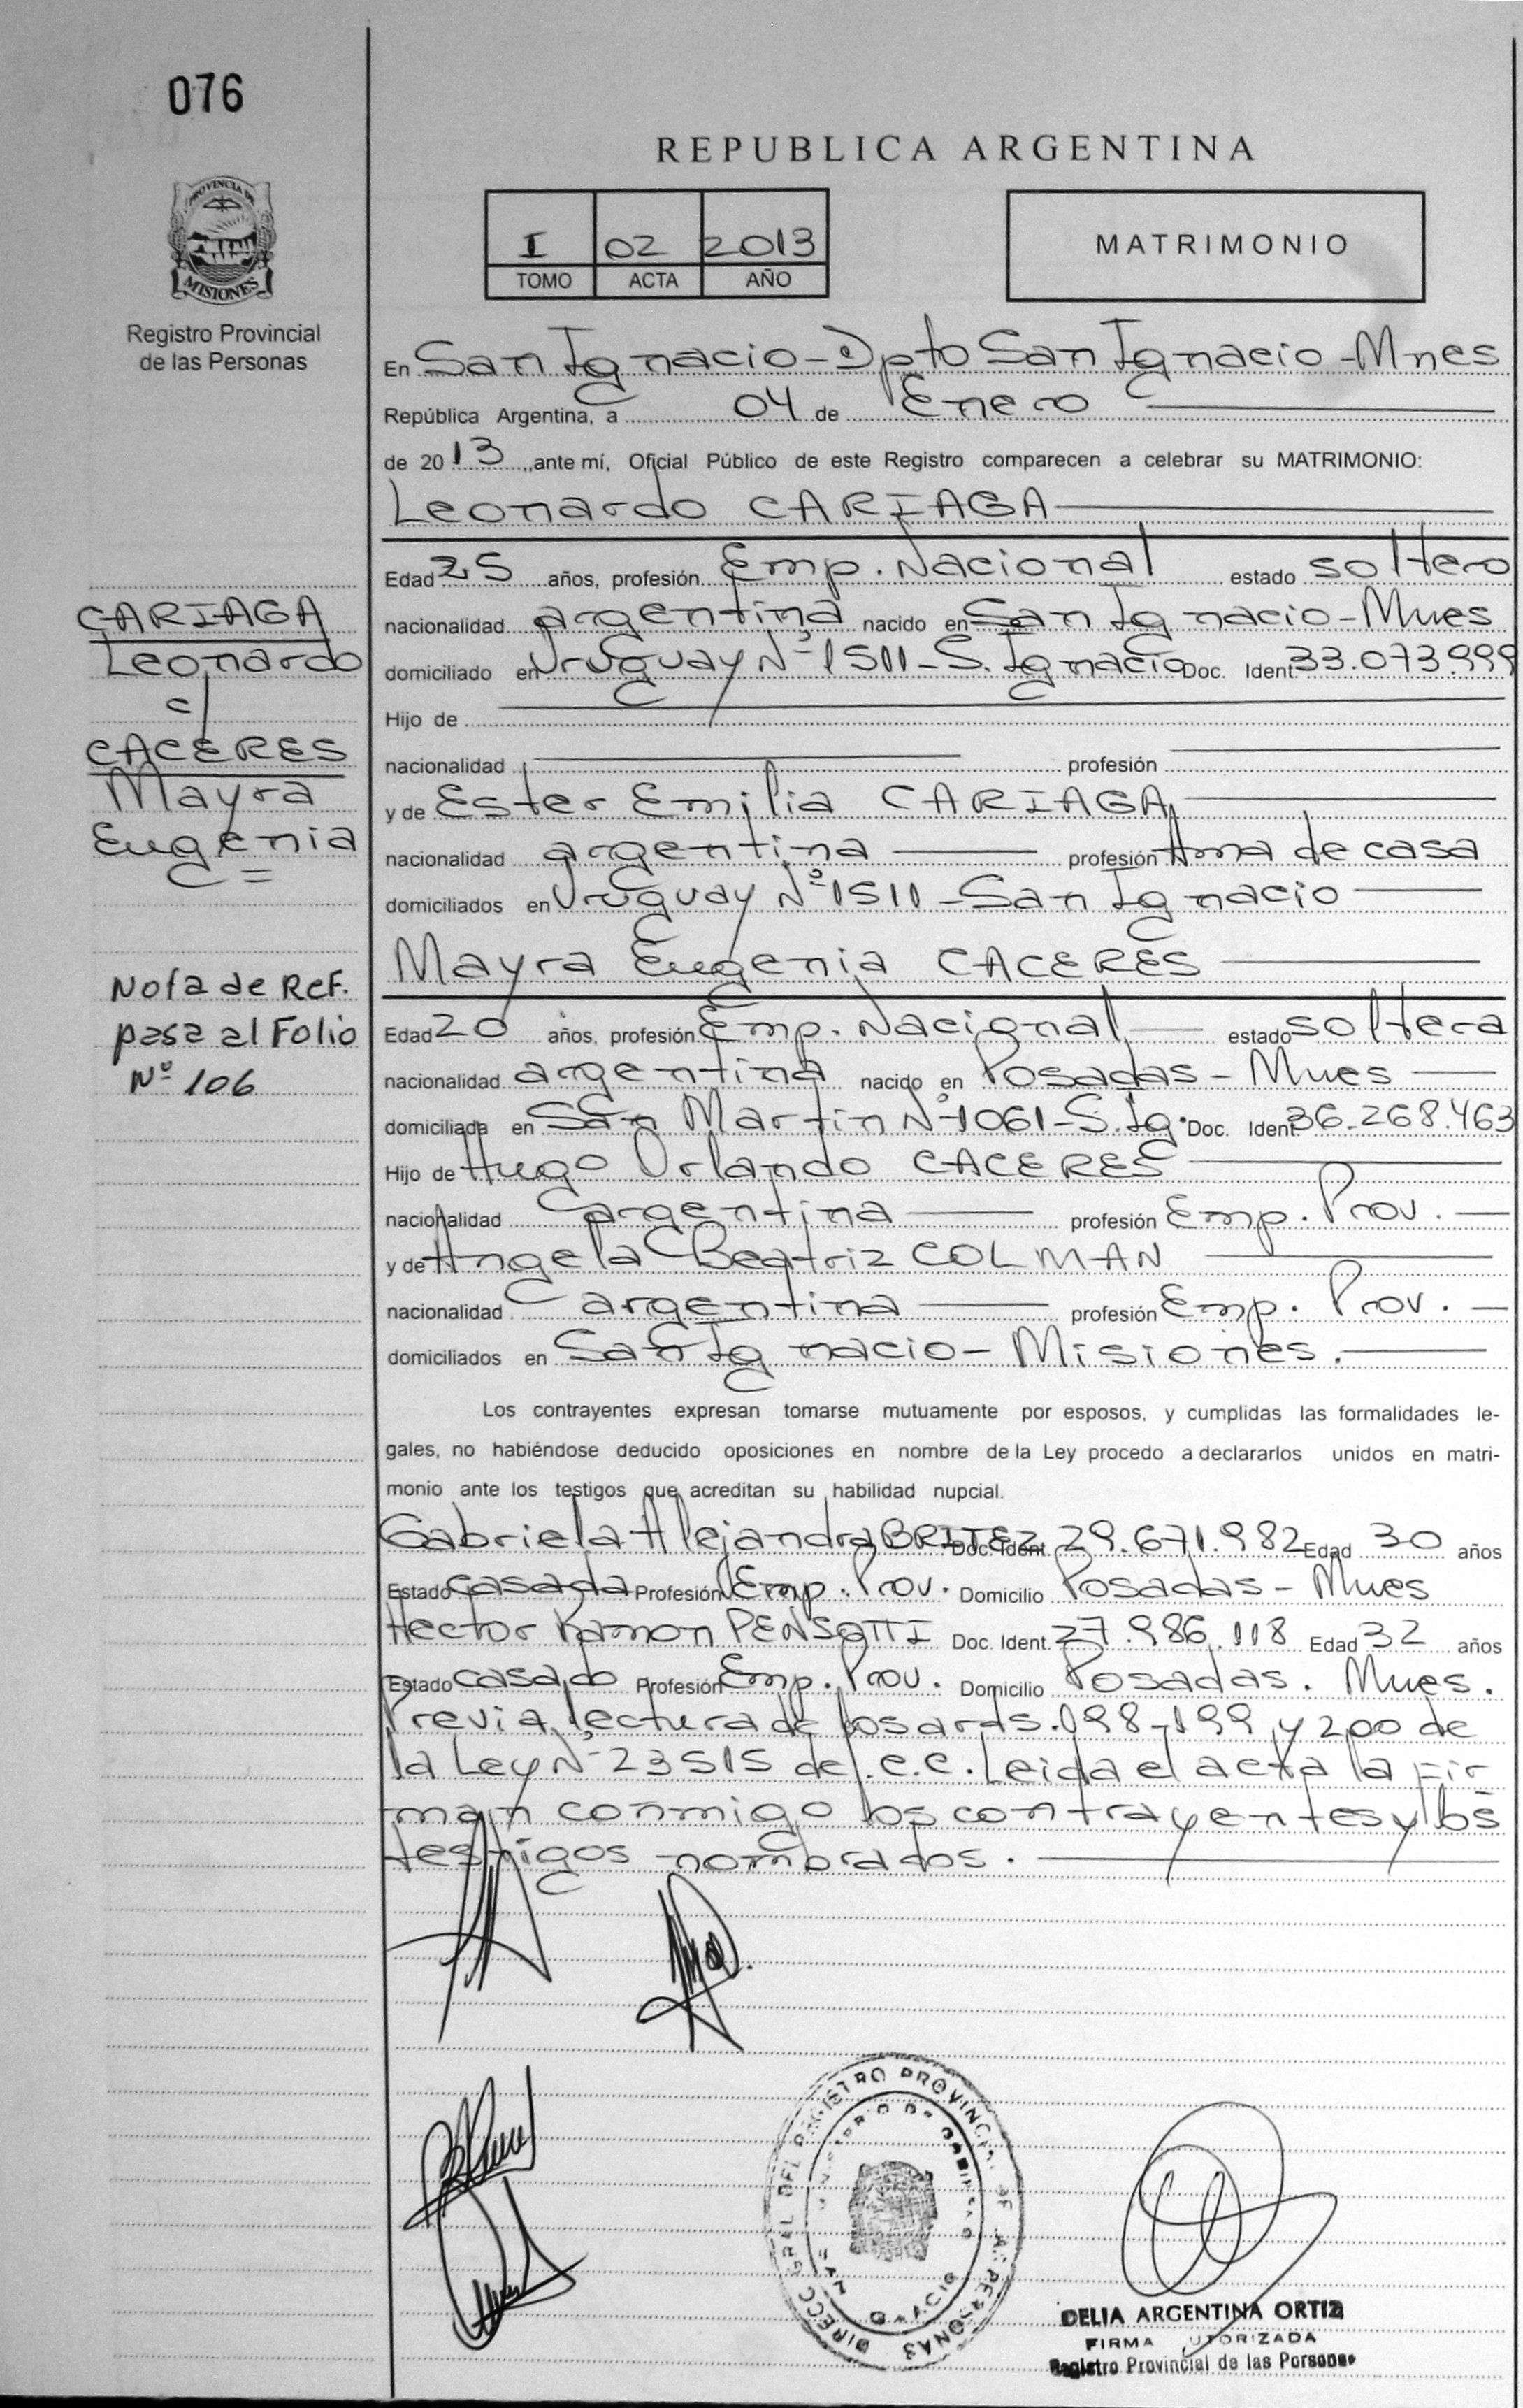 076
REPUBLICA ARGENTINA
I 02 2013
TOMO ACTA AÑO
MATRIMONIO
PROVINCIA DE
MISIONES
Registro Provincial
de las Personas
En San Ignacio - Dpto San Ignacio - Mnes
República Argentina, a 04 de Enero
de 2013, ante mí, Oficial Público de este Registro comparecen a celebrar su MATRIMONIO:
Leonardo CARIAGA
Edad 25 años, profesión Emp. Nacional estado soltero
nacionalidad argentina nacido en San Ignacio - Mnes
domiciliado en Uruguay Nº 1511 - S. Ignacio Doc. Ident. 33.073.999
Hijo de
nacionalidad profesión
y de Ester Emilia CARIAGA
nacionalidad argentina profesión Ama de casa
domiciliados en Uruguay Nº 1511 - San Ignacio
Mayra Eugenia CACERES
Edad 20 años, profesión Emp. Nacional estado soltera
nacionalidad argentina nacido en Posadas - Mnes
domiciliada en San Martin Nº 1061 - S. Ig. Doc. Ident. 36.268.463
Hijo de Hugo Orlando CACERES
nacionalidad argentina profesión Emp. Prov.
y de Angela Beatriz COLMAN
nacionalidad argentina profesión Emp. Prov.
domiciliados en San Ignacio - Misiones.
Los contrayentes expresan tomarse mutuamente por esposos, y cumplidas las formalidades le-
gales, no habiéndose deducido oposiciones en nombre de la Ley procedo a declararlos unidos en matri-
monio ante los testigos que acreditan su habilidad nupcial.
Gabriela Alejandra BRITEZ Doc. Ident. 29.671.982 Edad 30 años
Estado casada Profesión Emp. Prov. Domicilio Posadas - Mnes
Hector Ramon PENSOTTI Doc. Ident. 27.986.118 Edad 32 años
Estado casado Profesión Emp. Prov. Domicilio Posadas. Mnes.
Previa lectura de los arts. 198-199 y 200 de
la Ley Nº 23515 del C.C. Leida el acta la fir-
man conmigo los contrayentes y los
testigos nombrados.
CARIAGA
Leonardo
c/
CACERES
Mayra
Eugenia
Nota de Ref.
pasa al Folio
Nº 106
DIRECC GRAL DEL REGISTRO PROVINCIAL DE LAS PERSONAS
DELIA ARGENTINA ORTIZ
FIRMA AUTORIZADA
Registro Provincial de las Personas